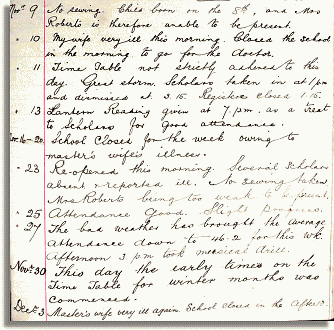 Nov. 9 No sewing. Child born on the 8th and Mrs
Roberts is therefore unable to be present.
" 10 My wife very ill this morning. Closed the School
in the morning to go for the doctor.
" 11 Time Table not strictly adhered to this
day. Great storm. Scholars taken in at 1 pm
and dismissed at 3.15. Registers closed at 1.15.
" 13 Lantern Reading given at 7 p.m. as a treat
to Scholars for good attendance.
Nov. 16-20. School Closed for the week owing to
master's wife's illness.
" 23 Re-opened this morning. Several Scholars
absent & reported ill. No sewing taken
Mrs Roberts being too weak to be present.
" 25 Attendance Good. Slight
" 27 The bad weather has brought the average
attendance down to 46.2 for this wk.
Afternoon 3 p.m. took musical drill.
Nov. 30 This day the early times on the
Time Table for winter months was
commenced.
Dec. 3 Master's wife very ill again. School closed in the After.